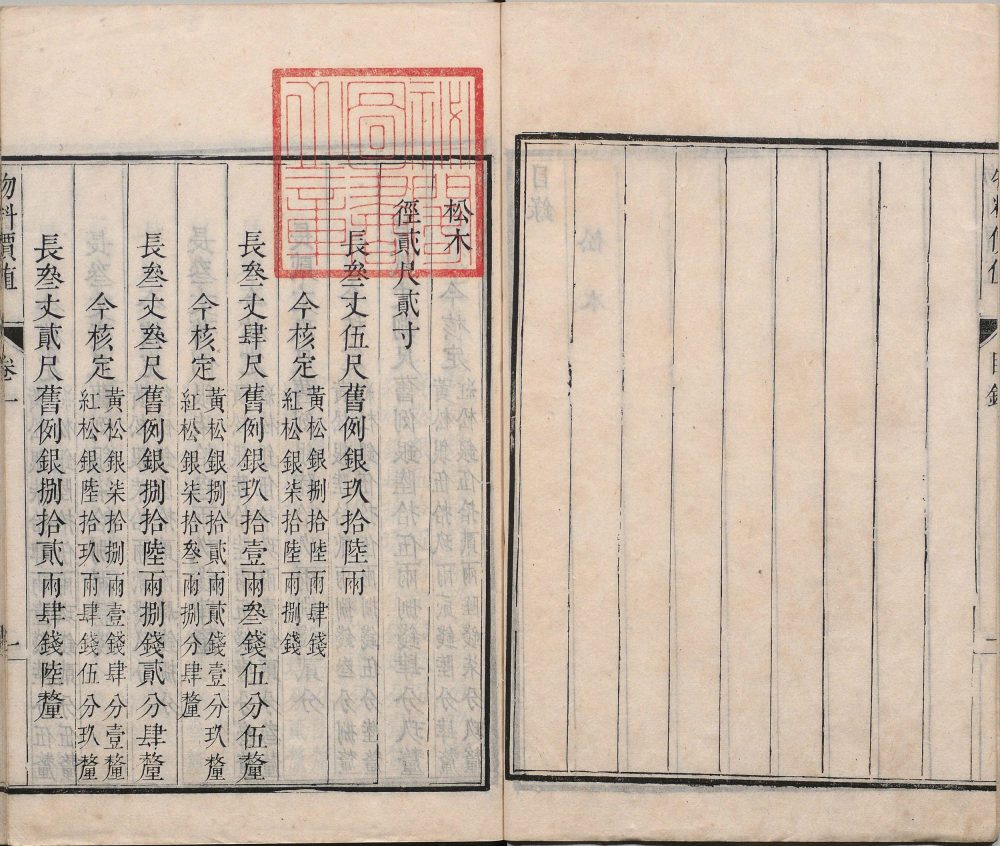 物料價值
目錄
二
松木
徑貳尺貳寸
長叄丈伍尺舊例銀玖拾陸兩
今核定
黃松銀捌拾陸兩肆錢
紅松銀柒拾陸兩捌錢
長叄丈肆尺舊例銀玖拾壹兩叄錢伍分伍釐
今核定
黃松銀捌拾貳兩貳錢壹分玖釐
紅松銀柒拾叄兩捌分肆釐
長叄丈叄尺舊例銀捌拾陸兩捌錢貳分肆釐
今核定
黃松銀柒拾捌兩壹錢肆分壹釐
紅松銀陸拾玖兩肆錢伍分玖釐
長叄丈貳尺舊例銀捌拾貳兩肆錢陸釐
物料價值
卷一
一